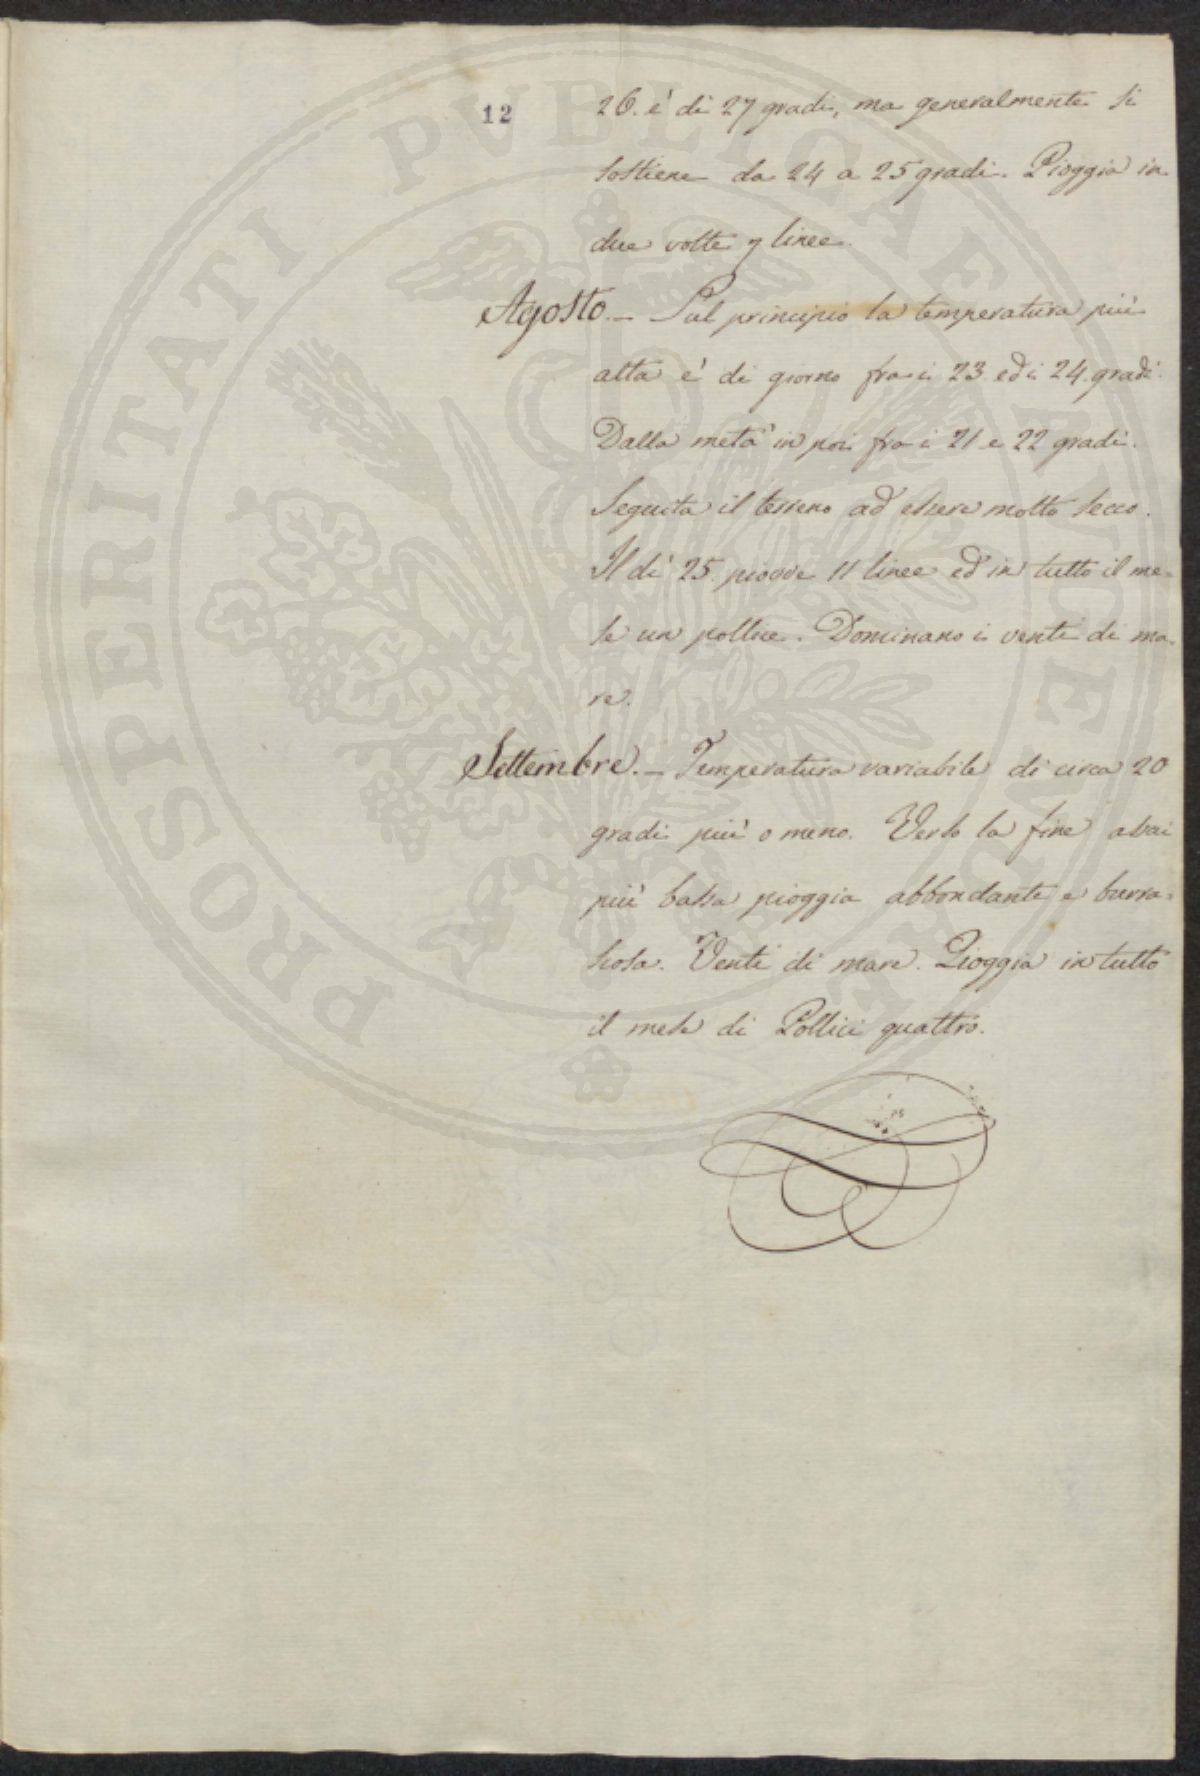 12
26. è di 27 gradi, ma generalmente si
sostiene da 24 a 25 gradi. Pioggia in
due volte 7 linee.
Agosto. — Sul principio la temperatura più
alta è di giorno fra i 23 ed i 24 gradi.
Dalla metà in poi fra i 21 e 22 gradi.
Seguita il terreno ad essere molto secco.
Il dì 25. piove 11 linee ed in tutto il me-
se un pollice. Dominano i venti di ma-
re.
Settembre. — Temperatura variabile di circa 20
gradi più o meno. Verso la fine assai
più bassa pioggia abbondante e burra-
scosa. Venti di mare. Pioggia in tutto
il mese di Pollici quattro.
PROSPERITATI PUBLICAE AUGENDAE